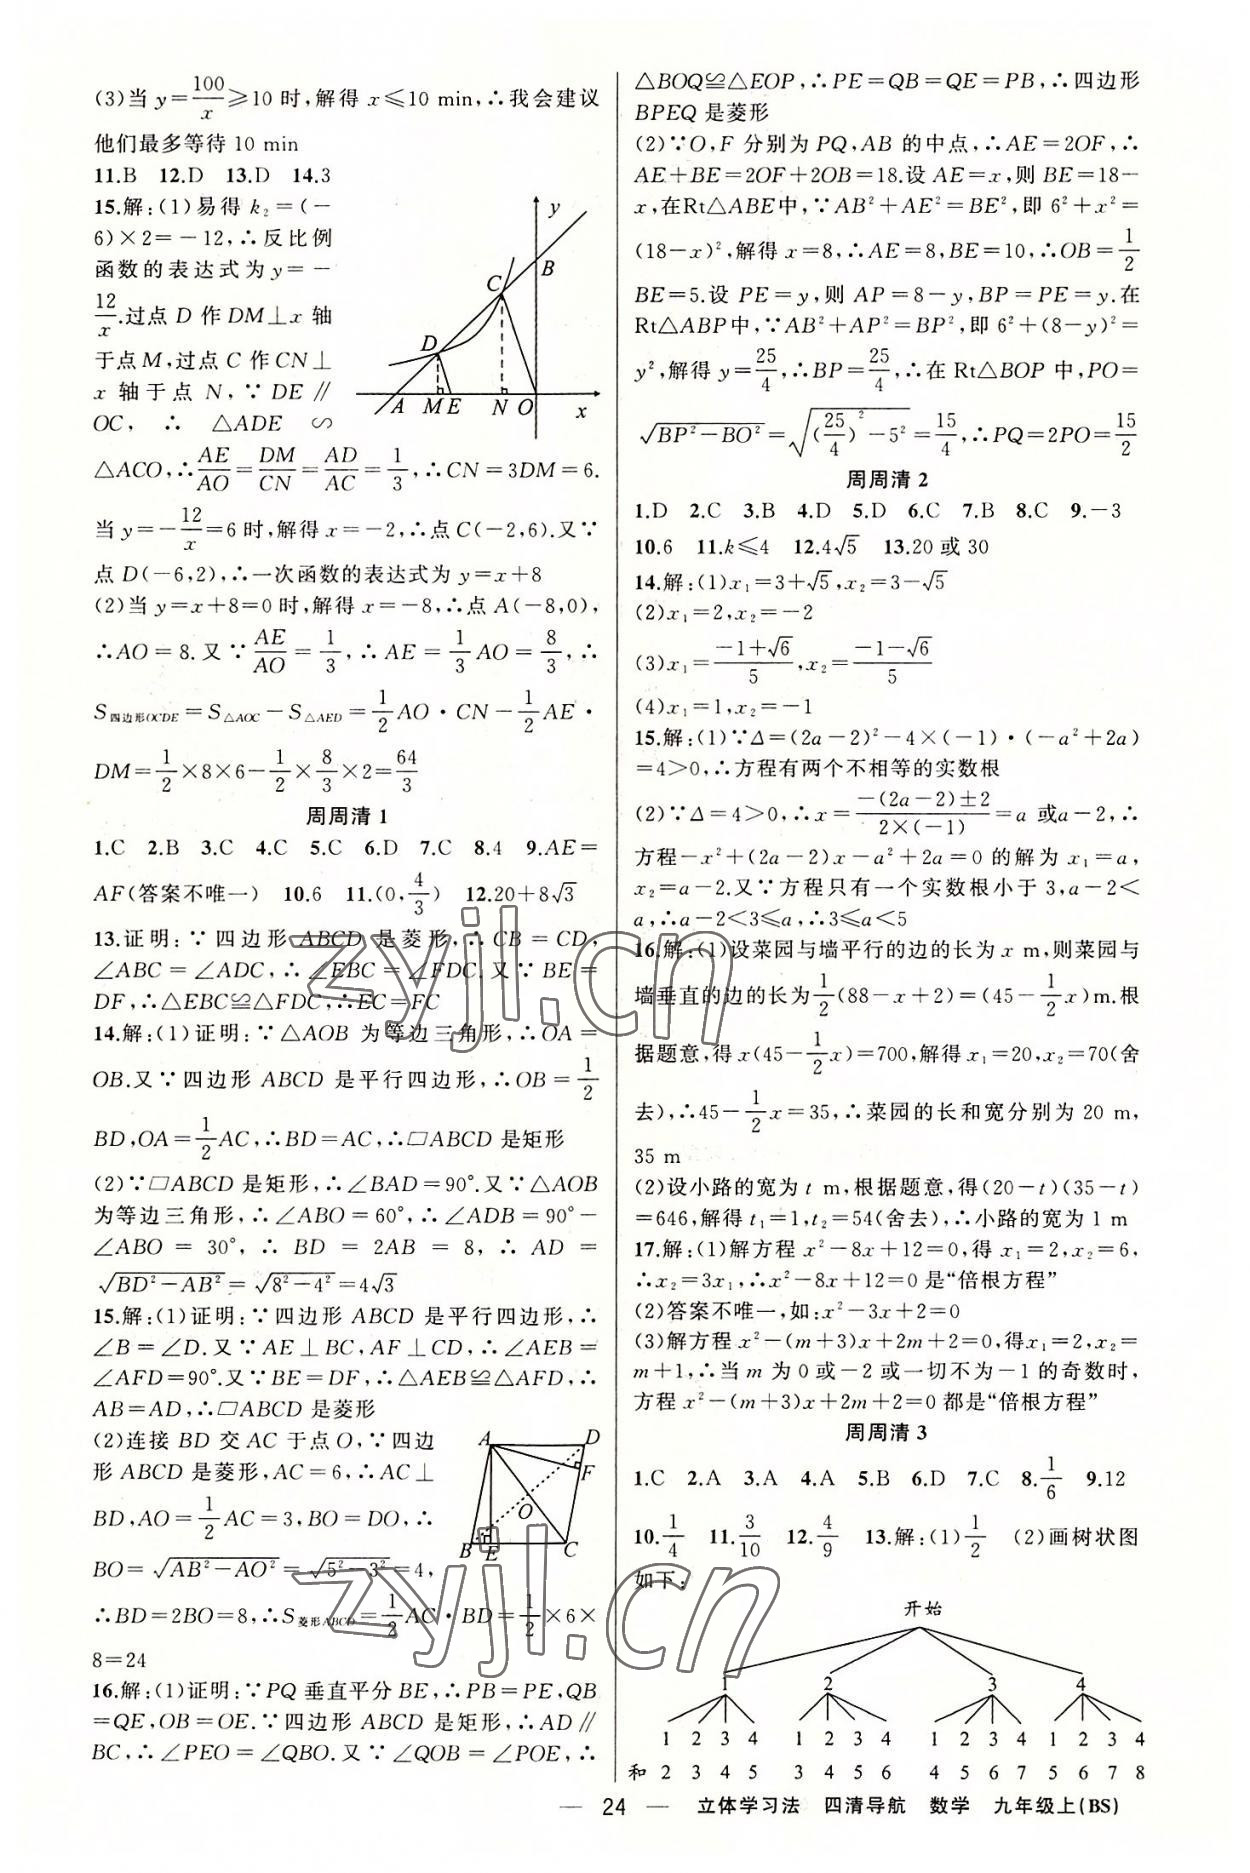 (3)当 y=100/x⩾10 时,解得 x⩽10 min,∴我会建议
他们最多等待 10 min
11.B 12.D 13.D 14.3
15.解:(1)易得 k₂=(-
6)×2=-12,∴反比例
函数的表达式为 y=-
12/x.过点 D 作 DM⊥x 轴
于点 M,过点 C 作 CN⊥
x 轴于点 N,∵DE∥
OC,∴△ADE∽
△ACO,∴AE/AO=DM/CN=AD/AC=1/3,∴CN=3DM=6.
当 y=-12/x=6 时,解得 x=-2,∴点 C(-2,6).又∵
点 D(-6,2),∴一次函数的表达式为 y=x+8
(2)当 y=x+8=0 时,解得 x=-8,∴点 A(-8,0),
∴AO=8.又∵AE/AO=1/3,∴AE=1/3AO=8/3,∴
S四边形OCDE=S△AOC-S△AED=1/2AO·CN-1/2AE·
DM=1/2×8×6-1/2×8/3×2=64/3
y
B
C
D
A M E N O x
周周清 1
1.C 2.B 3.C 4.C 5.C 6.D 7.C 8.4 9.AE=
AF(答案不唯一) 10.6 11.(0,4/3) 12.20+8√3
13.证明:∵四边形 ABCD 是菱形,∴CB=CD,
∠ABC=∠ADC,∴∠EBC=∠FDC.又∵BE=
DF,∴△EBC≌△FDC,∴EC=FC
14.解:(1)证明:∵△AOB 为等边三角形,∴OA=
OB.又∵四边形 ABCD 是平行四边形,∴OB=1/2
BD,OA=1/2AC,∴BD=AC,∴□ABCD 是矩形
(2)∵□ABCD 是矩形,∴∠BAD=90°.又∵△AOB
为等边三角形,∴∠ABO=60°,∴∠ADB=90°-
∠ABO=30°,∴BD=2AB=8,∴AD=
√(BD²-AB²)=√(8²-4²)=4√3
15.解:(1)证明:∵四边形 ABCD 是平行四边形,∴
∠B=∠D.又∵AE⊥BC,AF⊥CD,∴∠AEB=
∠AFD=90°.又∵BE=DF,∴△AEB≌△AFD,∴
AB=AD,∴□ABCD 是菱形
(2)连接 BD 交 AC 于点 O,∵四边
形 ABCD 是菱形,AC=6,∴AC⊥
BD,AO=1/2AC=3,BO=DO,∴
BO=√(AB²-AO²)=√(5²-3²)=4,
∴BD=2BO=8,∴S菱形ABCD=1/2AC·BD=1/2×6×
8=24
A D
F
O
B E C
16.解:(1)证明:∵PQ 垂直平分 BE,∴PB=PE,QB
=QE,OB=OE.∵四边形 ABCD 是矩形,∴AD∥
BC,∴∠PEO=∠QBO.又∵∠QOB=∠POE,∴
△BOQ≌△EOP,∴PE=QB=QE=PB,∴四边形
BPEQ 是菱形
(2)∵O,F 分别为 PQ,AB 的中点,∴AE=2OF,∴
AE+BE=2OF+2OB=18.设 AE=x,则 BE=18-
x,在Rt△ABE中,∵AB²+AE²=BE²,即 6²+x²=
(18-x)²,解得 x=8,∴AE=8,BE=10,∴OB=1/2
BE=5.设 PE=y,则 AP=8-y,BP=PE=y.在
Rt△ABP中,∵AB²+AP²=BP²,即 6²+(8-y)²=
y²,解得 y=25/4,∴BP=25/4,∴在 Rt△BOP 中,PO=
√(BP²-BO²)=√((25/4)²-5²)=15/4,∴PQ=2PO=15/2
周周清 2
1.D 2.C 3.B 4.D 5.D 6.C 7.B 8.C 9.-3
10.6 11.k⩽4 12.4√5 13.20 或 30
14.解:(1)x₁=3+√5,x₂=3-√5
(2)x₁=2,x₂=-2
(3)x₁=(-1+√6)/5,x₂=(-1-√6)/5
(4)x₁=1,x₂=-1
15.解:(1)∵Δ=(2a-2)²-4×(-1)·(-a²+2a)
=4>0,∴方程有两个不相等的实数根
(2)∵Δ=4>0,∴x=(-(2a-2)±2)/(2×(-1))=a 或a-2,∴
方程-x²+(2a-2)x-a²+2a=0 的解为 x₁=a,
x₂=a-2.又∵方程只有一个实数根小于 3,a-2<
a,∴a-2<3⩽a,∴3⩽a<5
16.解:(1)设菜园与墙平行的边的长为 x m,则菜园与
墙垂直的边的长为1/2(88-x+2)=(45-1/2x)m.根
据题意,得 x(45-1/2x)=700,解得 x₁=20,x₂=70(舍
去),∴45-1/2x=35,∴菜园的长和宽分别为 20 m,
35 m
(2)设小路的宽为 t m,根据题意,得(20-t)(35-t)
=646,解得 t₁=1,t₂=54(舍去),∴小路的宽为 1 m
17.解:(1)解方程 x²-8x+12=0,得 x₁=2,x₂=6,
∴x₂=3x₁,∴x²-8x+12=0 是“倍根方程”
(2)答案不唯一,如:x²-3x+2=0
(3)解方程 x²-(m+3)x+2m+2=0,得x₁=2,x₂=
m+1,∴当 m 为 0 或-2 或一切不为-1 的奇数时,
方程 x²-(m+3)x+2m+2=0 都是“倍根方程”
周周清 3
1.C 2.A 3.A 4.A 5.B 6.D 7.C 8.1/6 9.12
10.1/4 11.3/10 12.4/9 13.解:(1)1/2 (2)画树状图
如下:
开始
1 2 3 4
1 2 3 4 1 2 3 4 1 2 3 4 1 2 3 4
和 2 3 4 5 3 4 5 6 4 5 6 7 5 6 7 8
— 24 — 立体学习法 四清导航 数学 九年级上(BS)
zyjl.cn
zyjl.cn